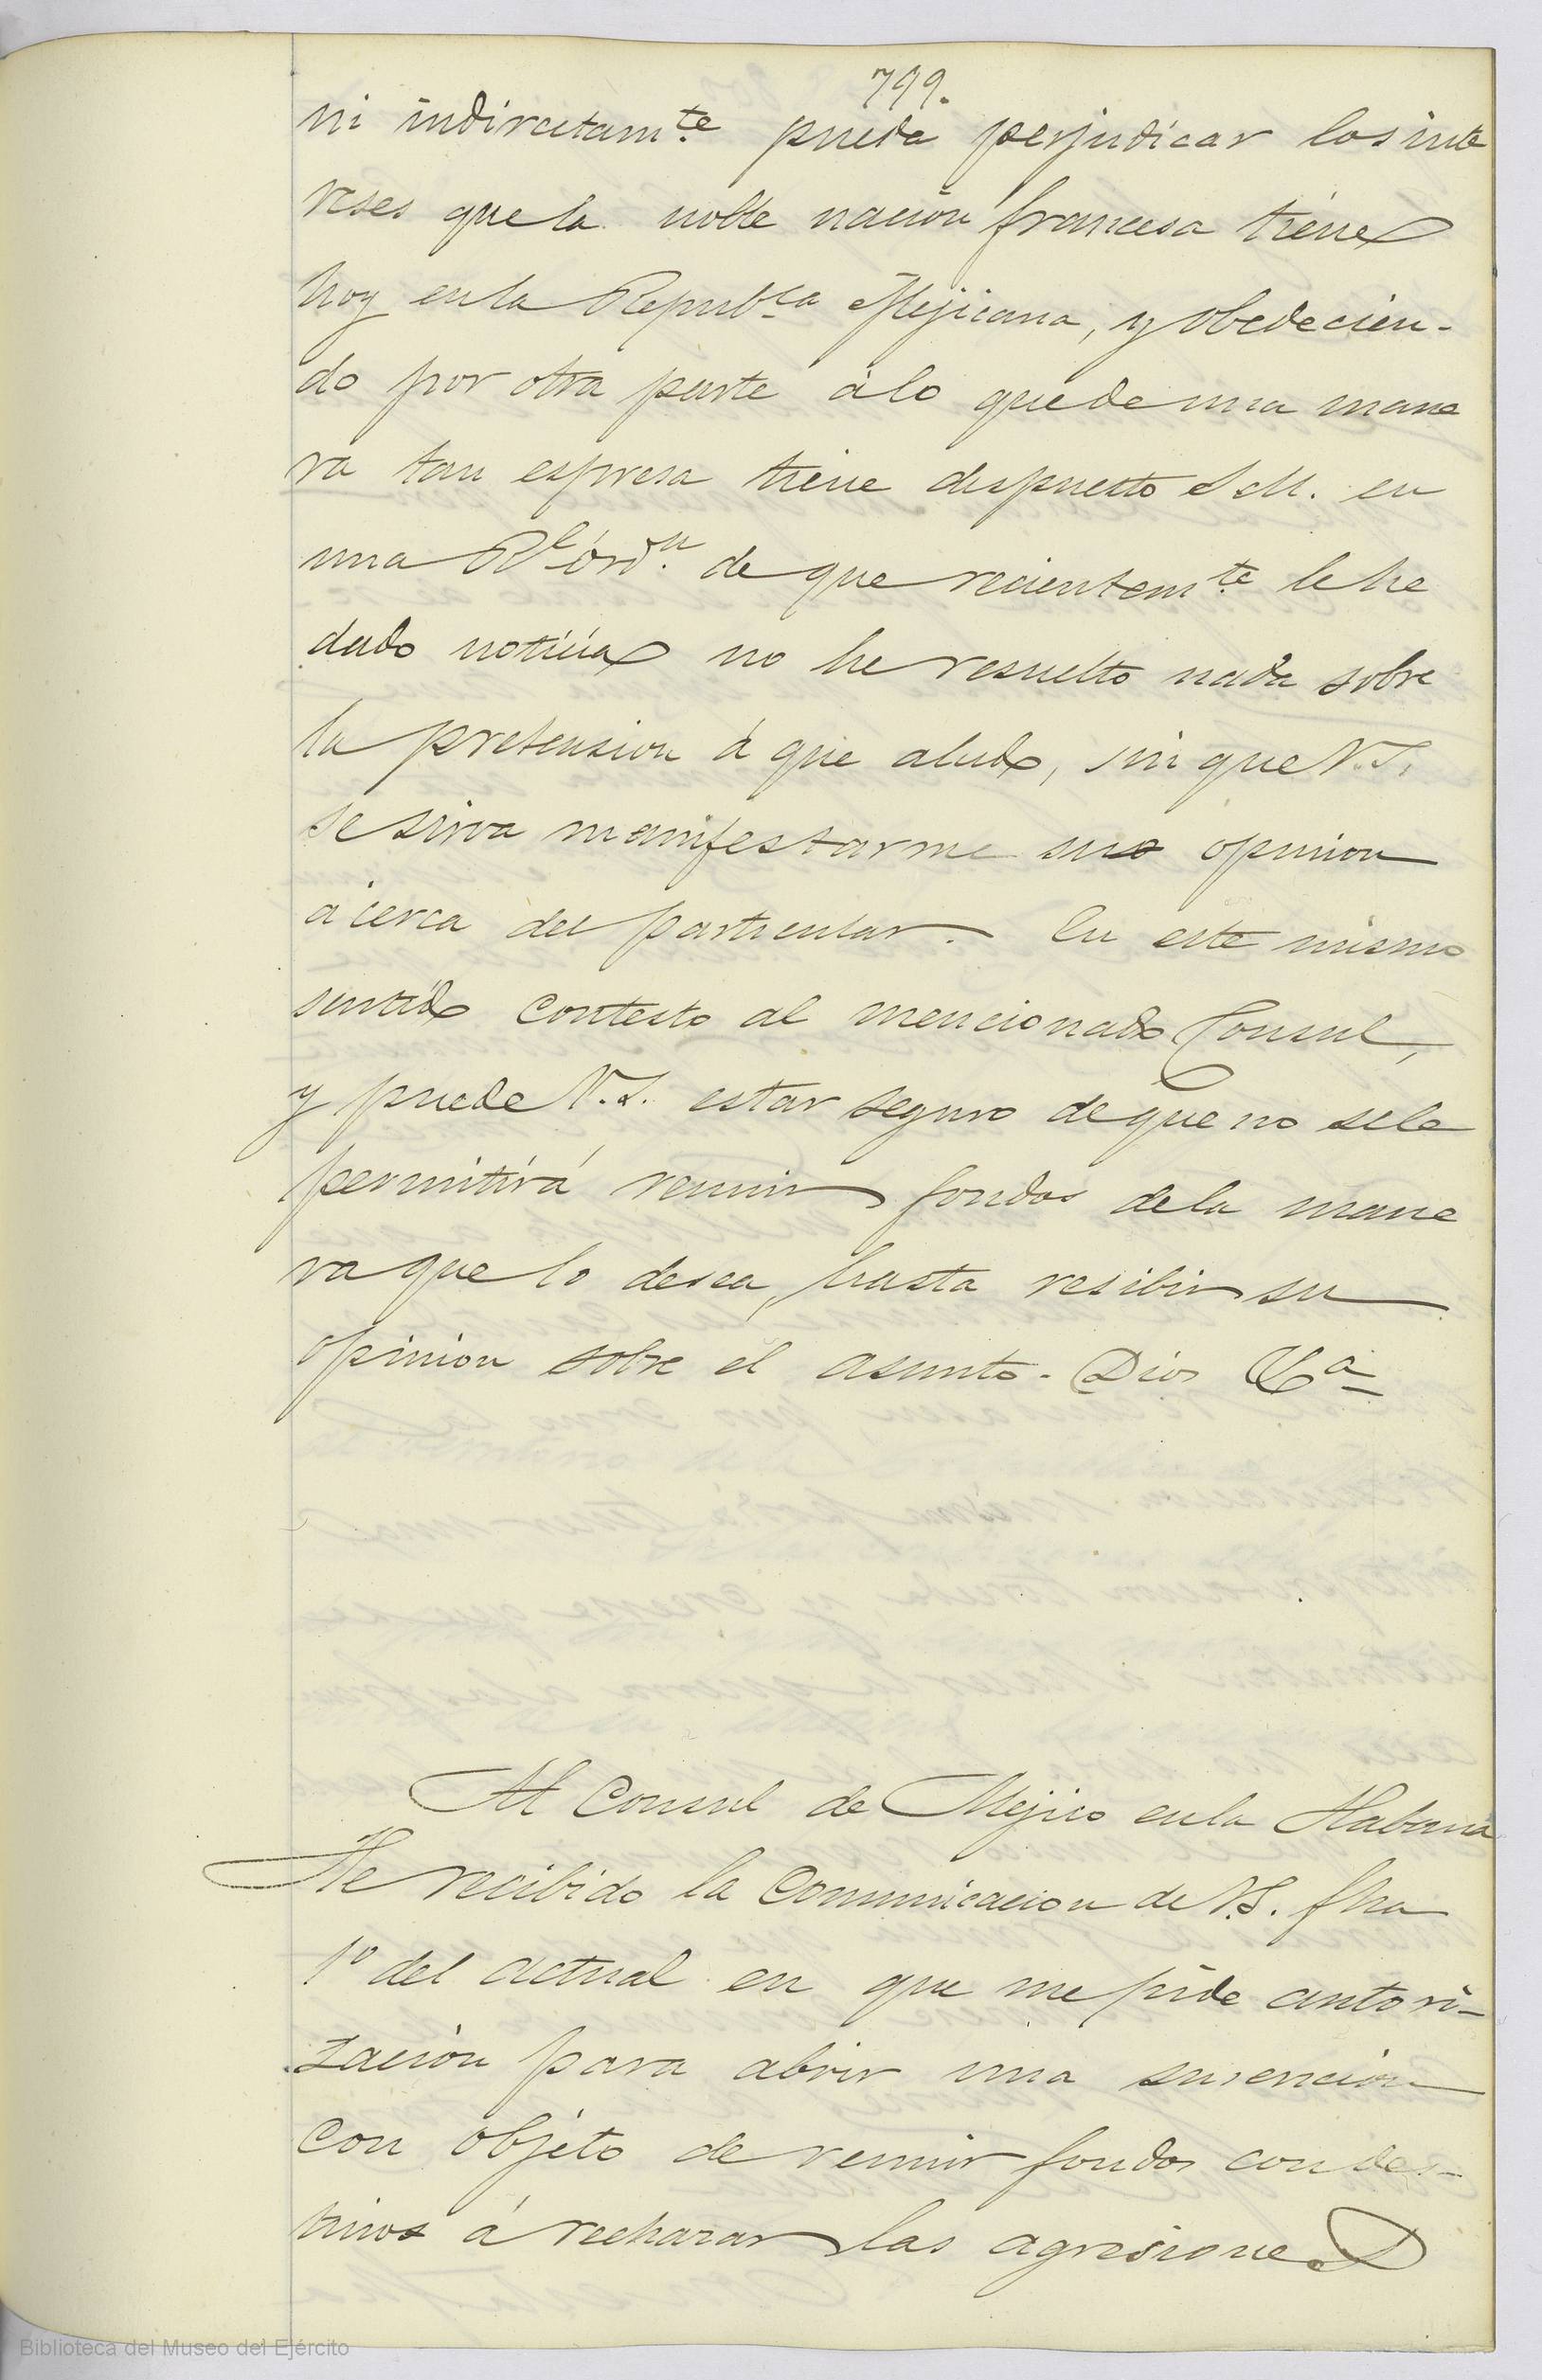 799.
ni indirectamte pueda perjudicar los inte
reses que la noble nación francesa tiene
hoy en la Repubca Mejicana, y obedecien-
do por otra parte á lo que de una mane
ra tan espresa tiene dispuesto S.M. en
una Rl órdn de que recientemte le he
dado noticia no he resuelto nada sobre
la pretension á que aludo, sin que V.S.
se sirva manifestarme su opinion
acerca del particular. En este mismo
sentido contesto al mencionado Consul,
y puede V.S. estar seguro de que no se le
permitirá reunir fondos de la mane
ra que lo desea, hasta resibir su
opinion sobre el asunto. Dios &a
Al Consul de Mejico en la Habana
He recibido la comunicacion de V.S. fha
1º del actual en que me pide autori-
zación para abrir una suscricion
con objeto de reunir fondos con des-
tino á rechazar las agresiones
Biblioteca del Museo del Ejército